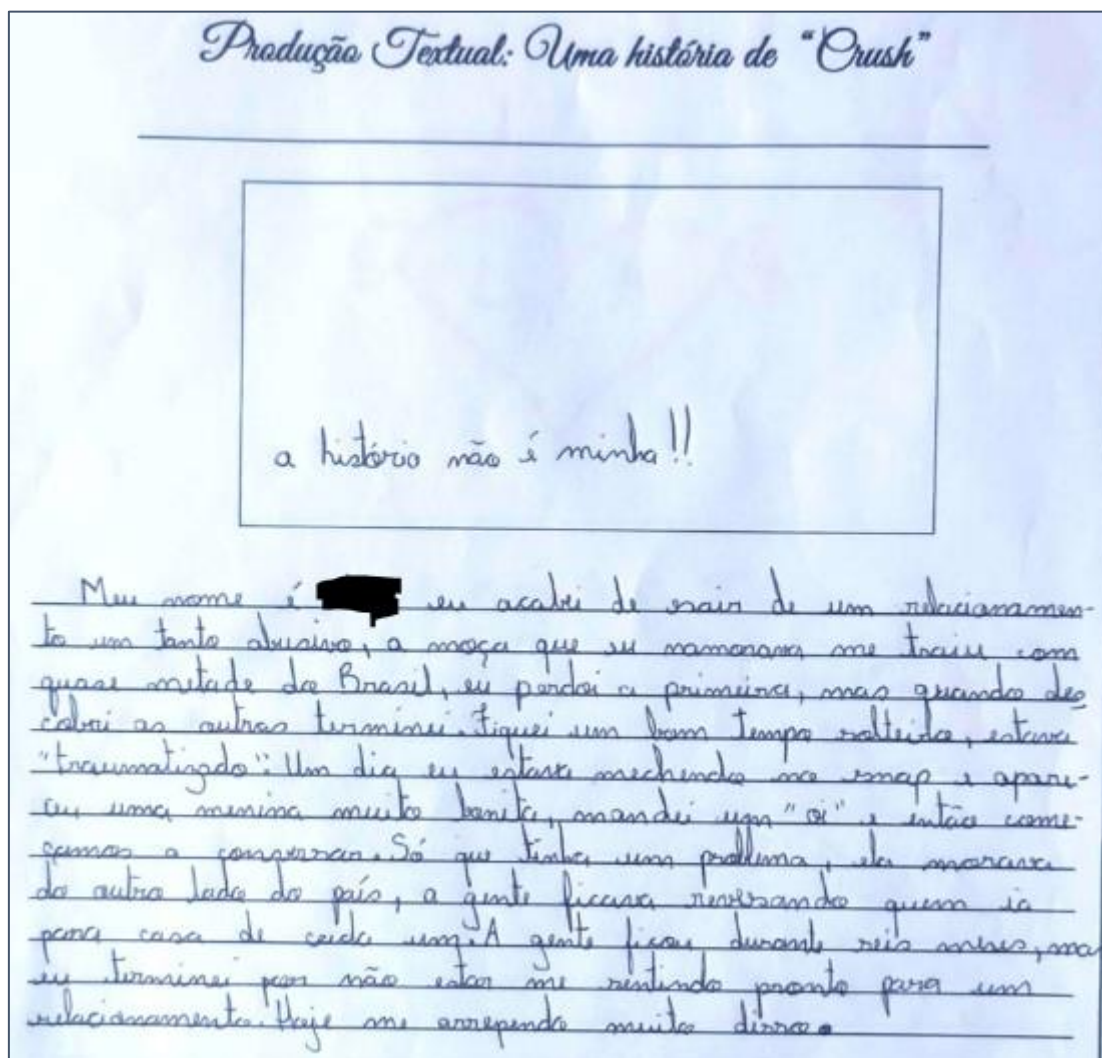 Produção Textual: Uma história de “Crush”
a histório não é minha!!
Meu nome é eu acabei de sair de um relacionamen-
to um tanto abusivo, a moça que eu namorava me traiu com
quase metade do Brasil, eu perdoi a primeira, mas quando des
cobri as outras terminei. Fiquei um bom tempo solteido, estava
"traumatizado". Um dia eu estava mechendo no snap e apare-
ceu uma menina muito bonita, mandei um "oi" e então come-
çamos a conversar. Só que tinha um problema, ela morava
do outro lado do país, a gente ficava reversando quem ia
para casa de cada um. A gente ficou durante seis meses, mas
eu terminei por não estar me sentindo pronto para um
relacionamento. Hoje me arrependo muito disso.